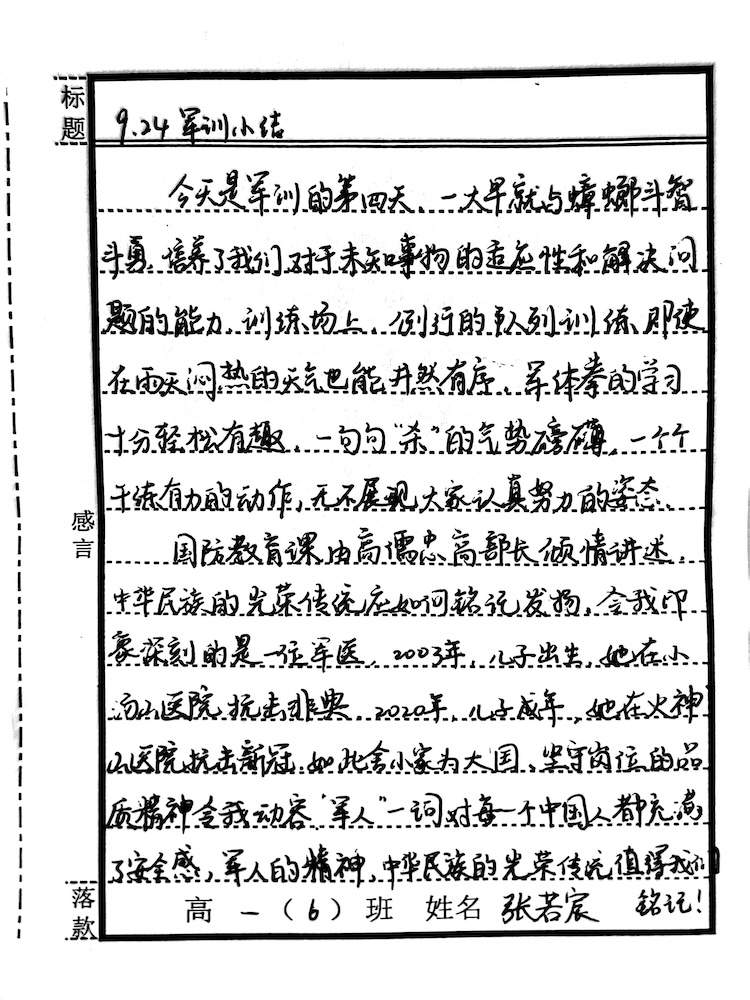 标题
9.24军训小结
今天是军训的第四天,一大早就与蟑螂斗智
斗勇,培养了我们对于未知事物的适应性和解决问
题的能力,训练场上,例行的队列训练,即使
在雨天闷热的天气也能井然有序,军体拳的学习
十分轻松有趣,一句句“杀”的气势磅礴,一个个
干练有力的动作,无不展现大家认真努力的姿态.
感言
国防教育课由高儒忠高部长倾情讲述,
中华民族的光荣传统应如何铭记发扬,令我印
象深刻的是一位军医,2003年,儿子出生,她在小
汤山医院抗击非典,2020年,儿子成年,她在火神
山医院抗击新冠,如此舍小家为大国,坚守岗位的品
质精神令我动容,“军人”一词对每一个中国人都充满
了安全感,军人的精神,中华民族的光荣传统值得我们
铭记!
落款
高一(6)班 姓名 张若宸